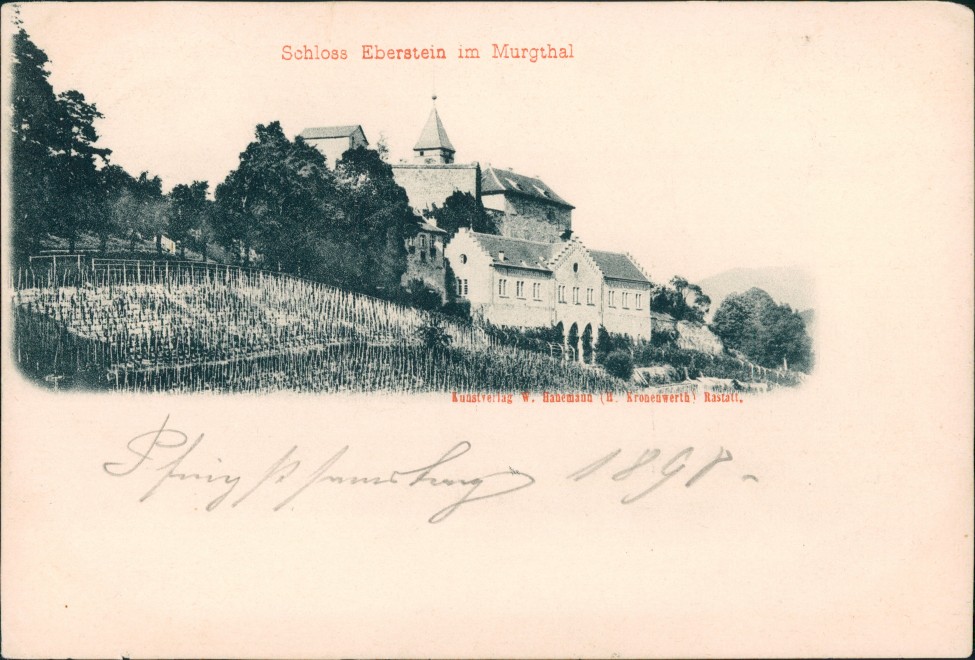 Schloss Eberstein im Murgthal
Kunstverlag W. Hanemann (H. Kronenwerth) Rastatt.
Pfingstsamstag 1897